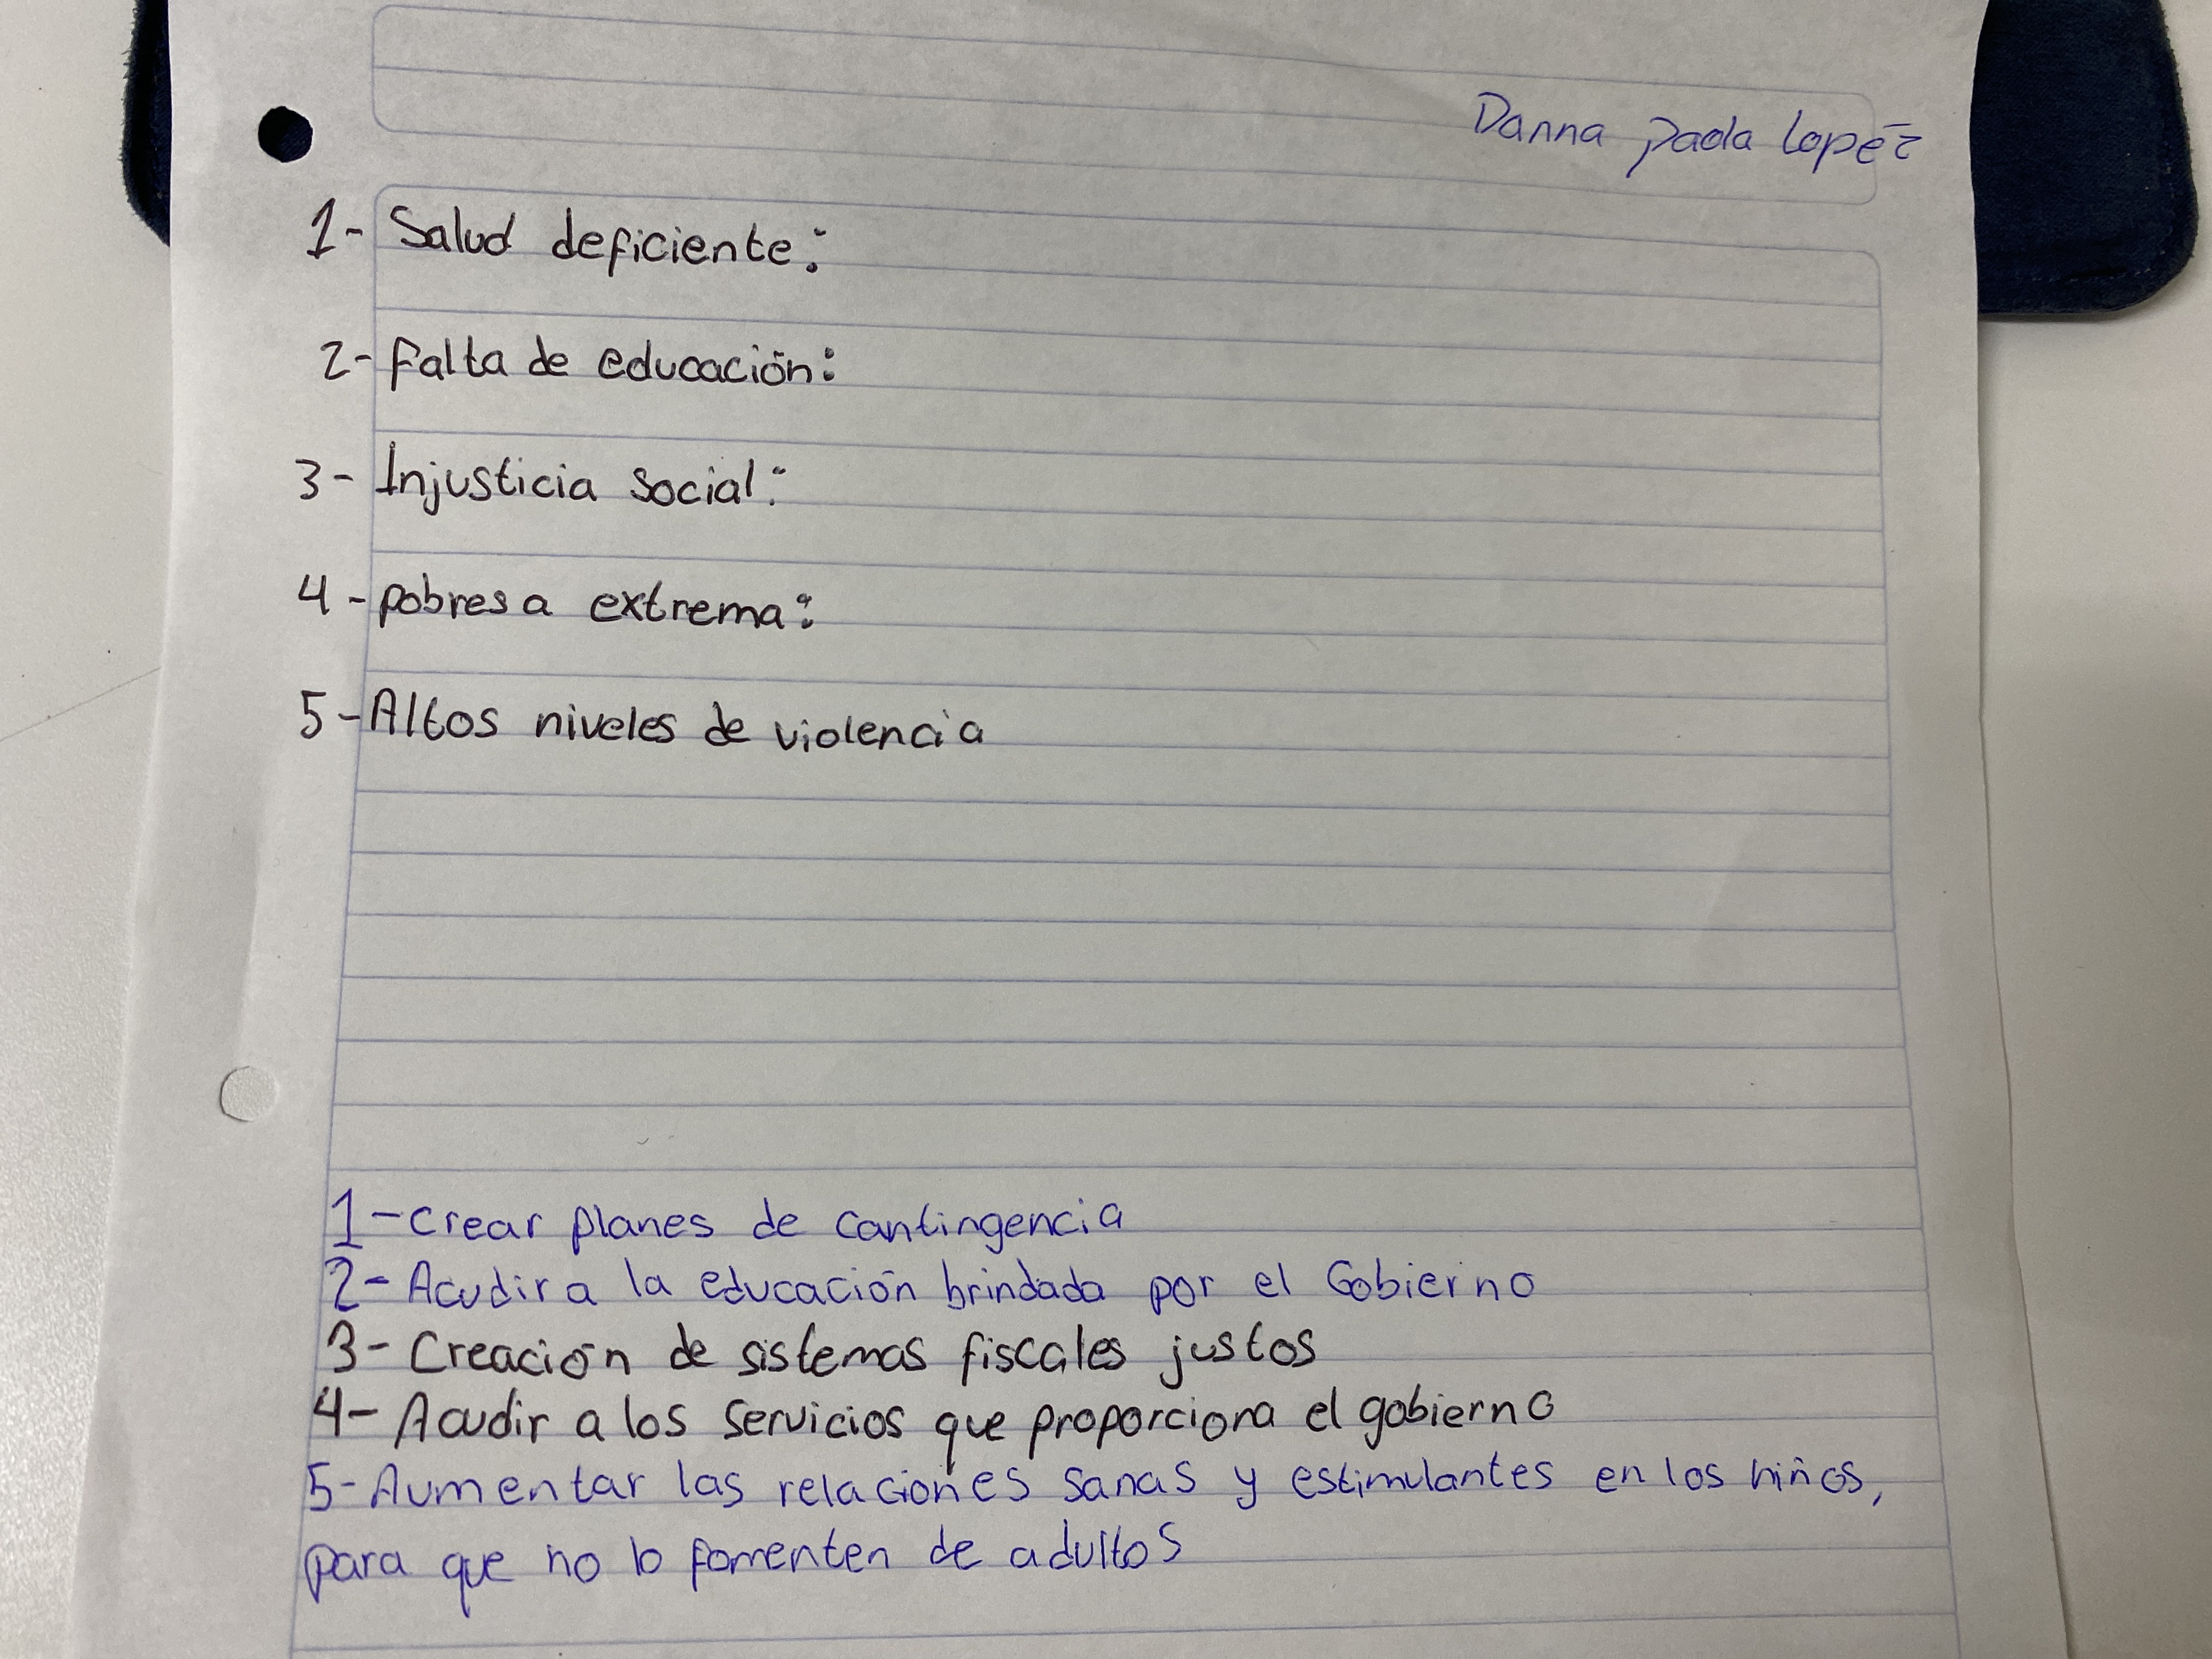 Danna paola lopéz
1- Salud deficiente:
2- falta de educación:
3- Injusticia social:
4- pobresa extrema:
5- Altos niveles de violencia
1- crear planes de contingencia
2- Acudir a la educación brindada por el Gobierno
3- Creación de sistemas fiscales justos
4- Acudir a los servicios que proporciona el gobierno
5- Aumentar las relaciones sanas y estimulantes en los niños,
para que no lo fomenten de adultos